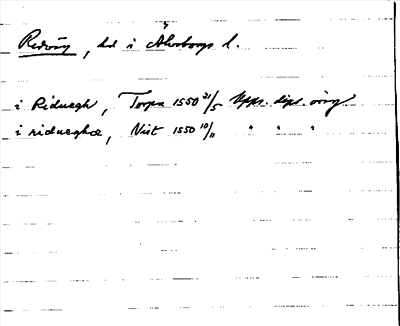 Redväg, hd i Älvsborgs l.
i Riduegh, Torpa 1550 21/5 Upps. dipl. övrg
i riduegha, Nist 1550 10/11 " " "